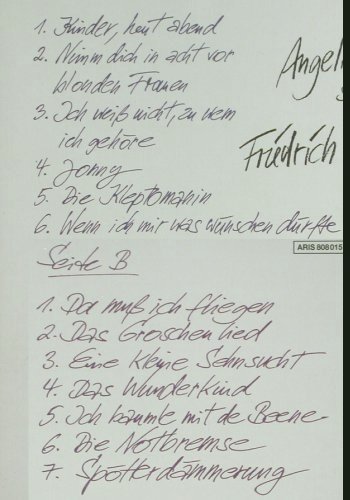 1. Kinder, heut abend
2. Nimm dich in acht vor
blonden Frauen
3. Ich weiß nicht, zu wem
ich gehöre
4. Jonny
5. Die Kleptomanin
6. Wenn ich mir was wünschen dürfte
Angel
Friedrich
ARIS 808015
Seite B
1. Da muß ich fliegen
2. Das Groschenlied
3. Eine kleine Sehnsucht
4. Das Wunderkind
5. Ich baumle mit de Beene
6. Die Notbremse
7. Spötterdämmerung